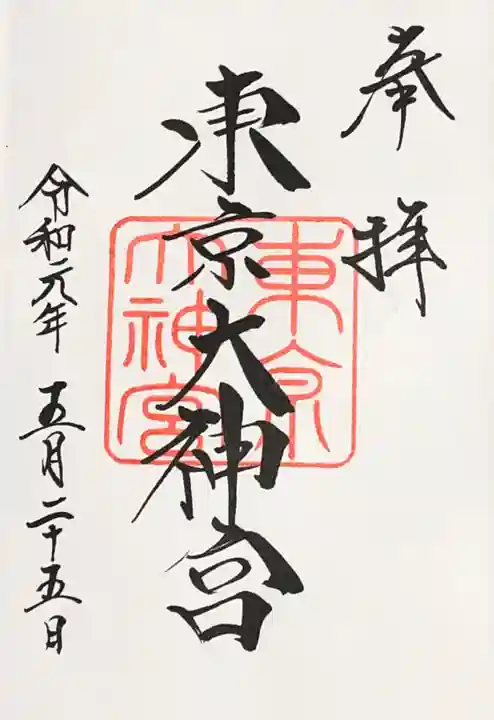 奉拝
東京大神宮
東京
大神宮
令和元年 五月二十五日